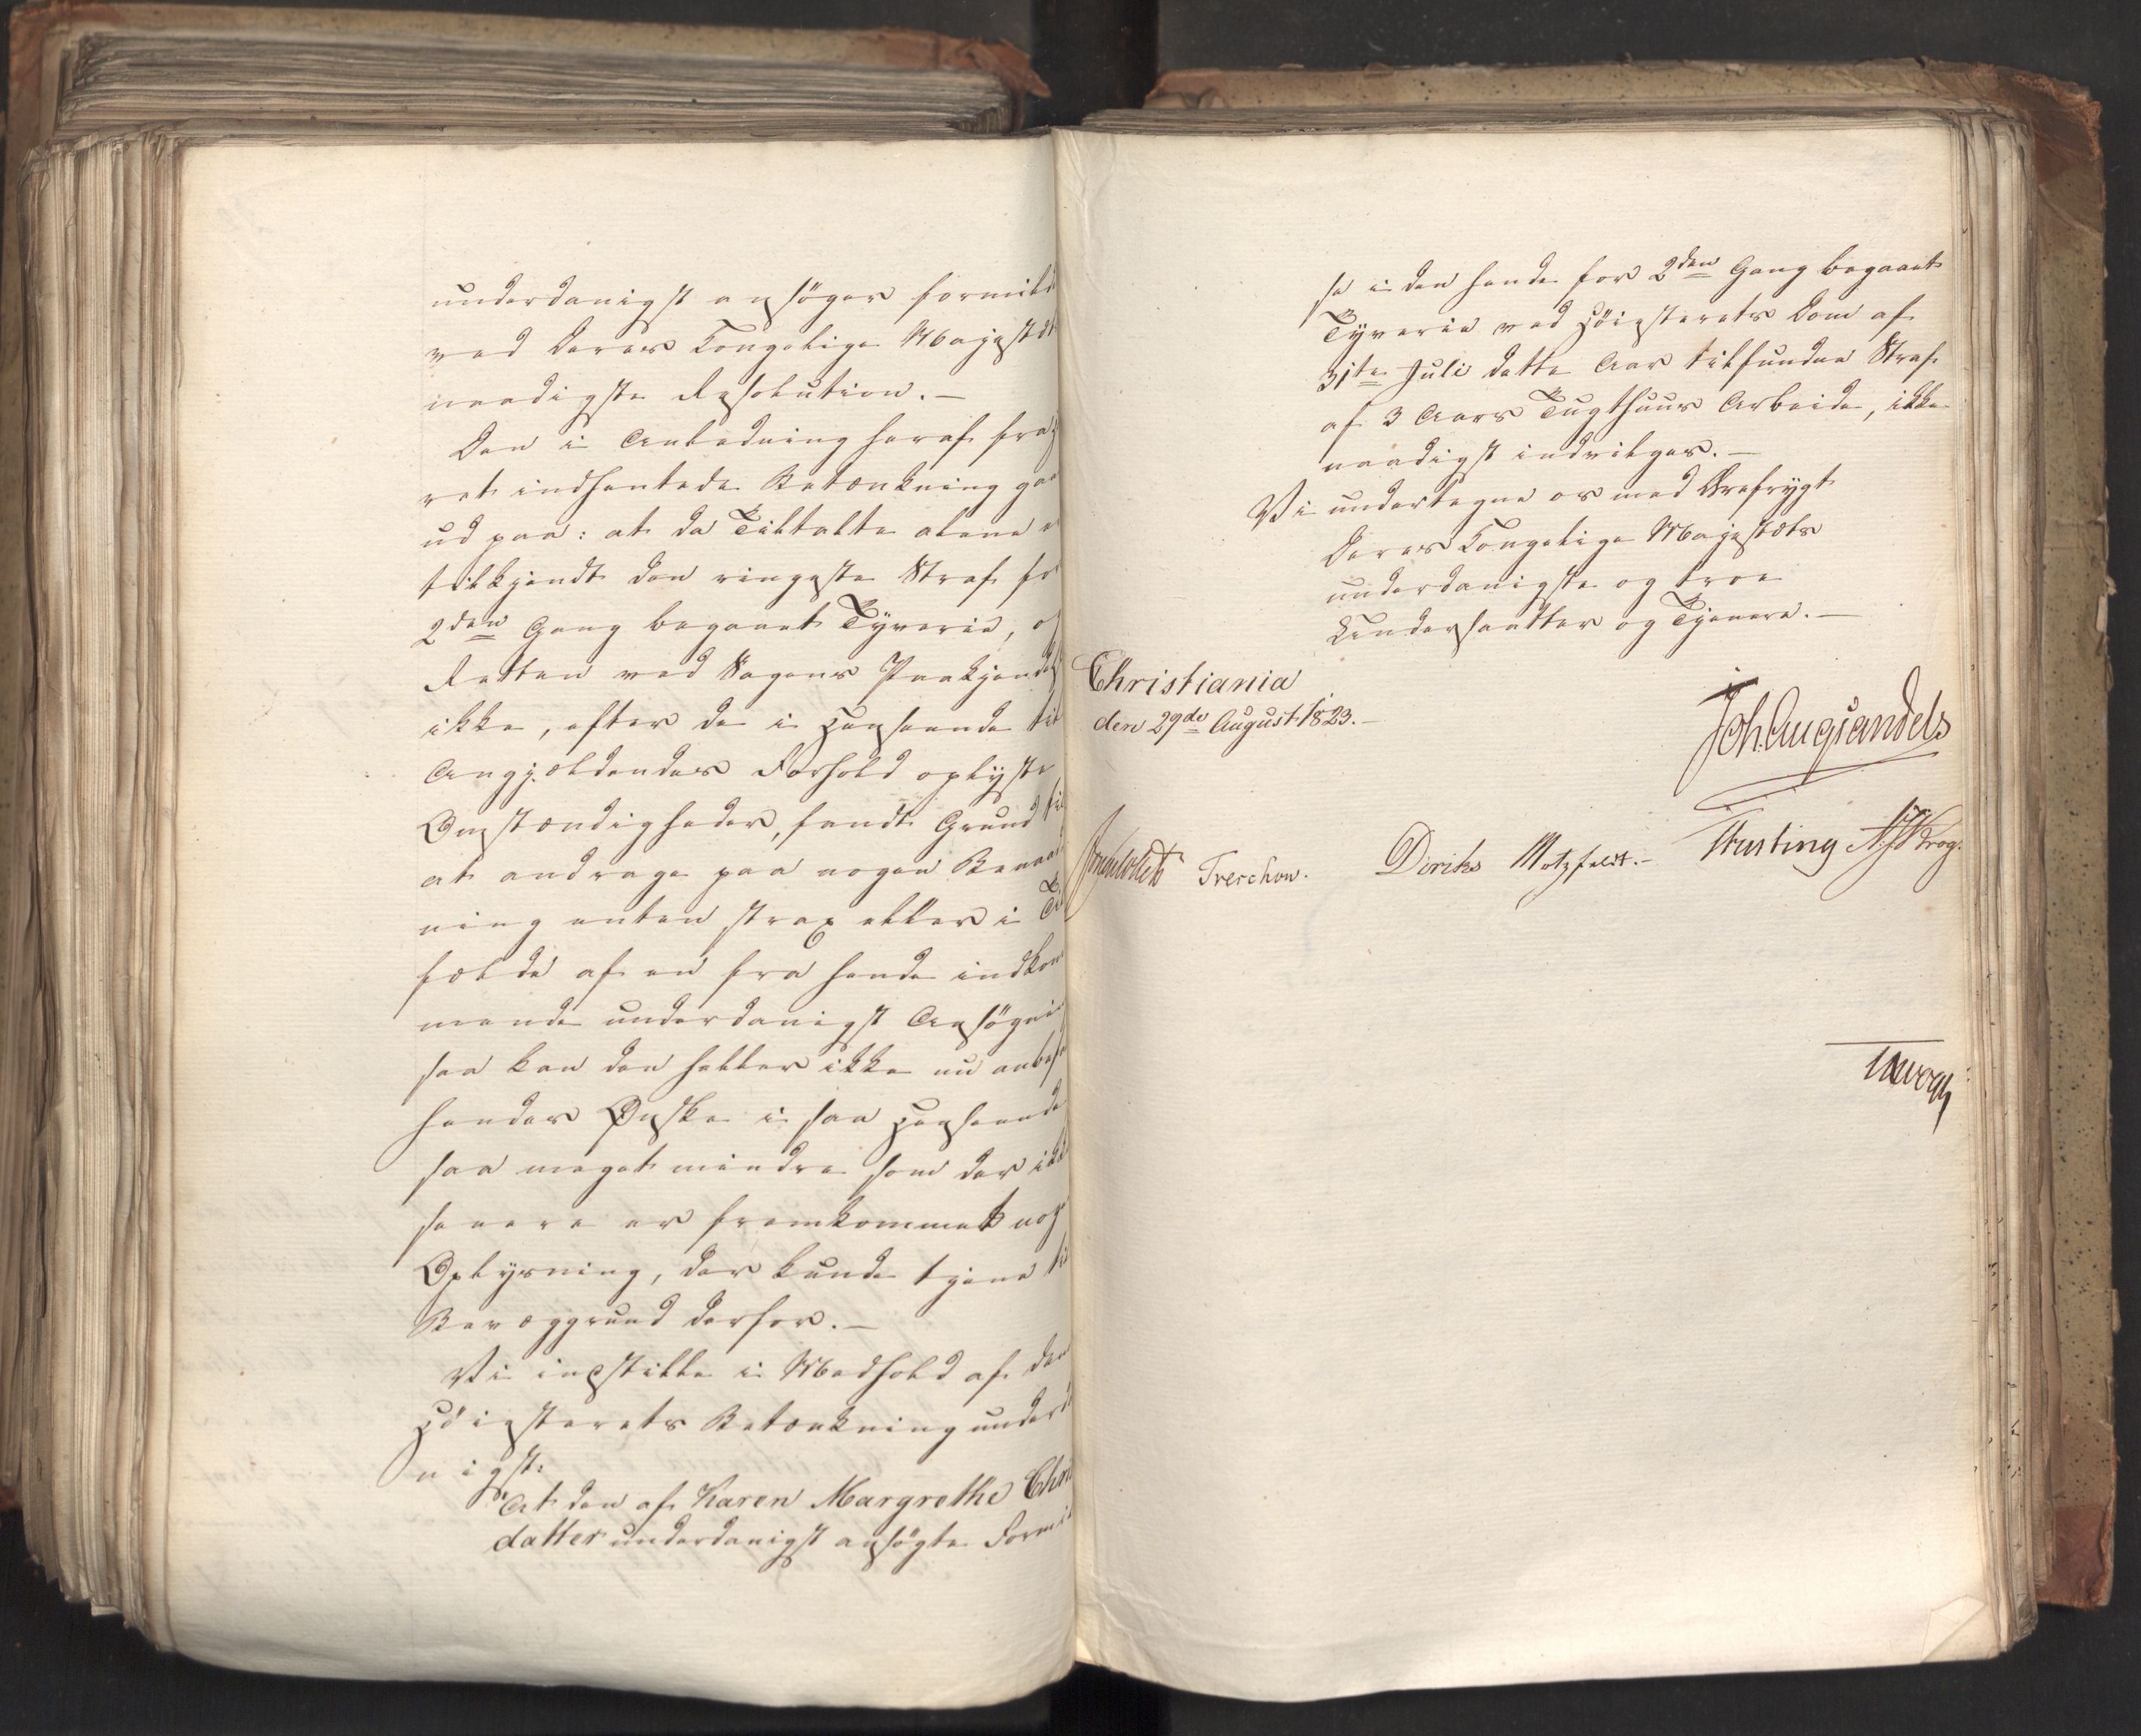 underdanigst ansöger formild
ved Deres Kongelige Majestæt
naadigste Resolution. —
Den i Anledning heraf fra
ret indhentede Betænkning gaa
ud paa: at da Tiltalte alene e
tilkjendt den ringeste Straf fo
2den Gang begaaet Tyverie, o
Retten ved Sagens Paakjendel
ikke, efter de i Henseende til
Angjældendes Forhold oplyste
Omstændigheder, fandt Grund til
at andrage paa nogen Benaad
ning enten strax eller i Ti
fælde af en fra hende indkom
mende underdanigst Ansögni
saa kan den heller ikke nu anbefa
hendes Önske i saa Henseende
saa meget mindre som der ikk
senere er fremkommet nog
Oplysning, der kunde tjene ti
Bevæggrund derfor. —
Vi indstille i Medhold af den
Höiesterets Betænkning underd
nigst:
At den af Karen Margrethe Chri
datter underdanigst ansögte Formil
se i den hende for 2den Gang begaaet
Tyverie ved Höiesterets Dom af
31te Juli dette Aar tilfundne Straf
af 3 Aars Tugthuus Arbeide, ikke
naadigst indvilges. —
Vi undertegne os med Ærefrygt
Deres Kongelige Majestæts
underdanigste og troe
Undersaatter og Tjenere. —
Christiania
den 29de August 1823. —
Joh. Aug. Sandels
Sommerhielm Treschow. Diriks Motzfeldt. — Krog.